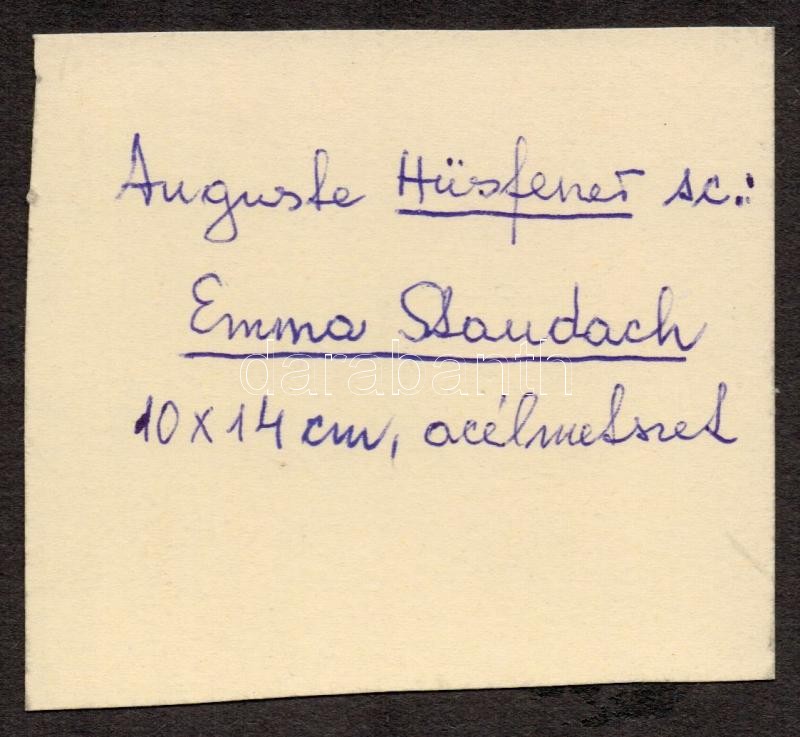 Auguste Hüsfener sc.:
Emma Staudach
darabanth
10 x 14 cm, acélmetszet